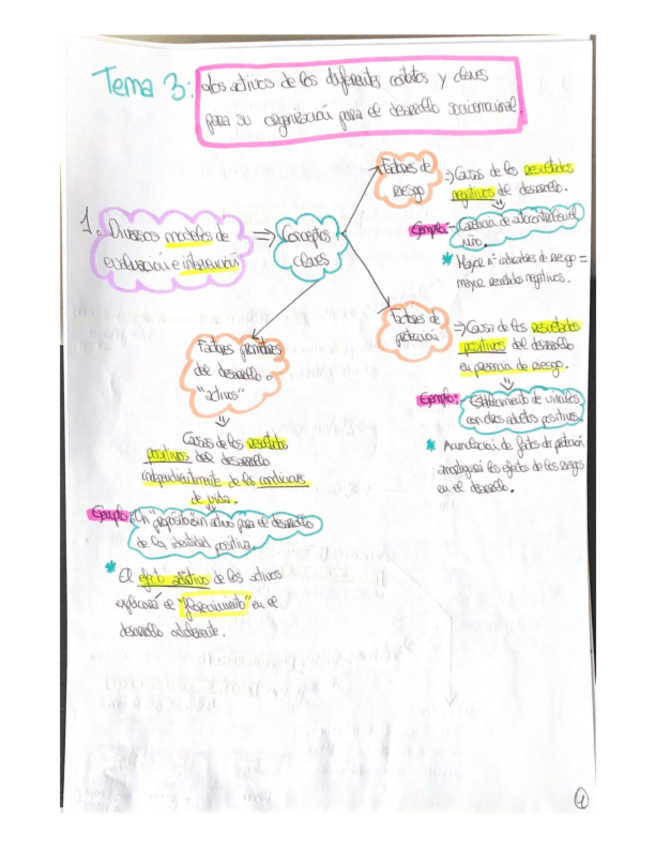 Tema 3:
Los activos de los diferentes contextos y claves
para su organización para el desarrollo socioemocional.
1. Diversos modelos de
evaluación e intervención
⇒ Conceptos
claves
Factores de
riesgo
⇒ Causas de los resultados
negativos del desarrollo.
Ejemplo: - Carencia de autocontrol en el
niño.
* Mayor nº indicadores de riesgo =
mayor resultados negativos.
Factores de
protección
⇒ Causa de los resultados
positivos del desarrollo
en presencia de riesgo.
Ejemplo: - Establecimiento de vínculos
con otros adultos positivos.
* Acumulación de factores de protección
amortiguará los efectos de los riesgos
en el desarrollo.
Factores promotores
del desarrollo o
"activos"
Causas de los resultados
positivos del desarrollo
independientemente de las condiciones
de vida.
Ejemplo: Un "propósito" es un activo para el desarrollo
de la identidad positiva.
* El efecto aditivo de los activos
explicará el "florecimiento" en el
desarrollo adolescente.
1